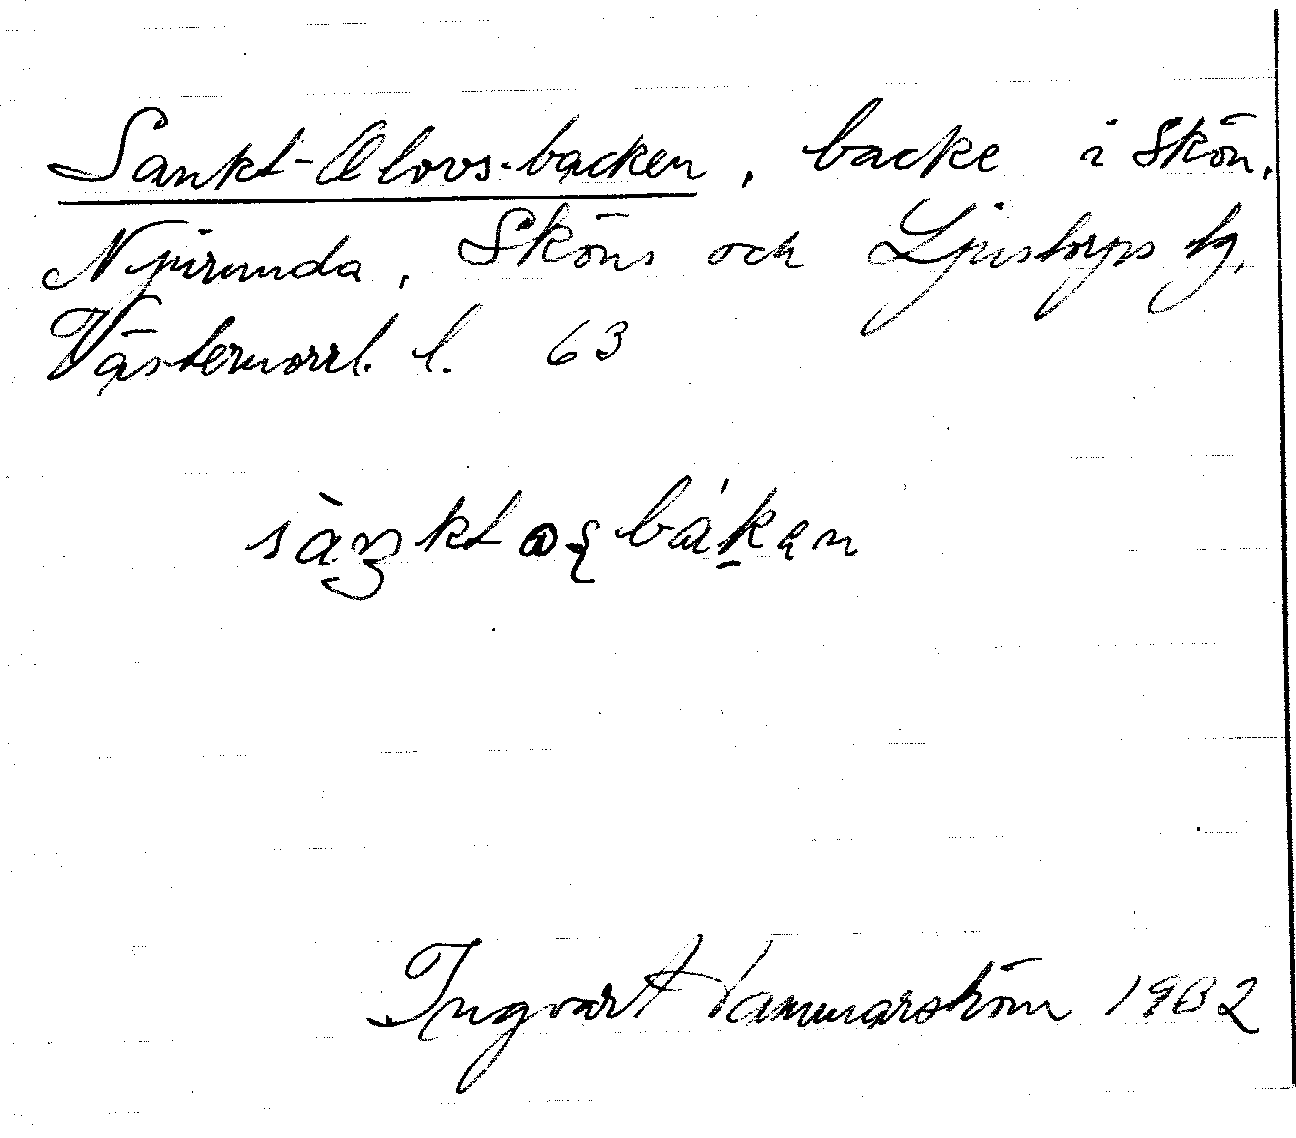 Sankt-Olovs-backen, backe i Skön,
Njurunda, Sköns och Ljustorps tg,
Västernorrl. l. 63
Ingvart Hammarström 1932